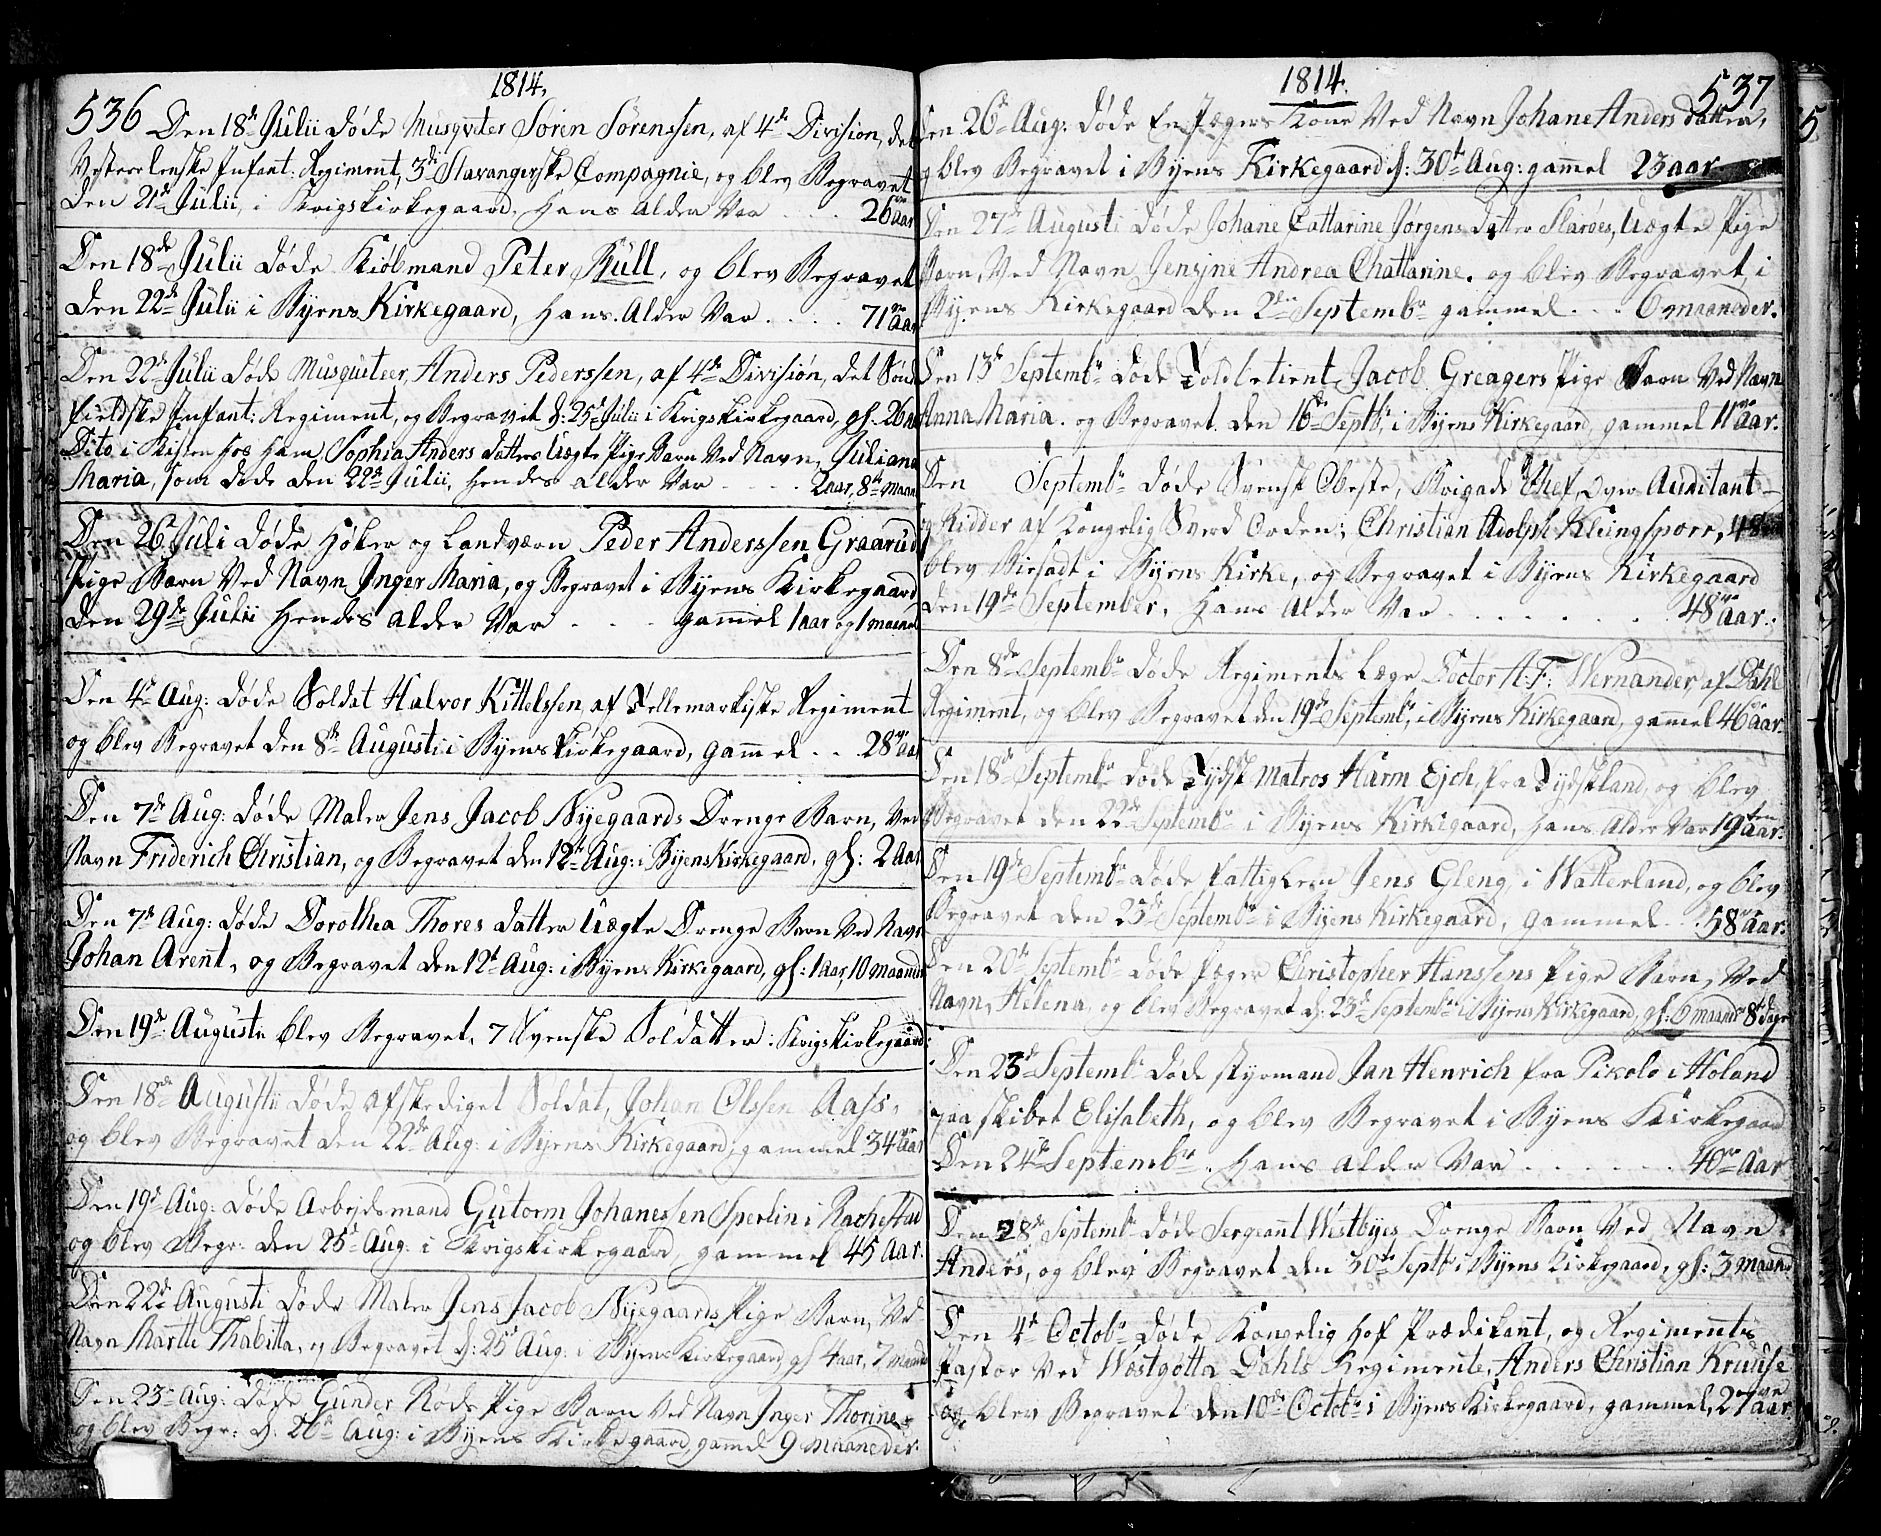 1814.
536 Den 18de Julii døde Musqveter Sörin Sörenssen, af 4de Division, det
Vesterlenske Infant: Regiment, 3di Stavangerske Compagnie, og blev Begravet
den 21de Julii, i Krigskirkegaard. hans alder var .... 26 aar
Den 18de Julii døde Kiöbmand Peter Büll, og blev Begravet
den 22de Julii i Byens Kirkegaard, hans Alder var .... 71 Aar
Den 22de Julii døde Musquiteer, Anders Pederssen, af 4de Division, det Sönd
fieldske Infant: Regiment, og Begravet d: 25de Julii i Krigskirkegaard, gl: 26 aar
Dito, i Kisten hos ham Sophia Anders datters Uægte Pige Barn Ved Navn, Juliana
Maria, som døde den 22de Julii, hendes alder var .... 2 aar, 8te maan
Den 26 Juli døde höker og Landværn Peder Anderssen Graarud
Pige Barn Ved Navn Inger Maria, og Begravet i Byens Kirkegaard
den 29de Julii hendes alder var ... gammel 1 aar og 1 maaned
Den 4de Aug: døde Soldat Halvor Kittelssen, af Tellemarkiske Regiment
og blev Begravet den 8de Augusti i Byens Kirkegaard, gammel .. 28 aar
Den 7de Aug: døde Maler Jens Jacob Nyegaards Drenge Barn, Ved
Navn Friderich Christian, og Begravet den 12te Aug: i Byens Kirkegaard, gl: 2 Aar
Den 7de Aug: døde Dorothea Thores datter Uægte Drenge Barn Ved Navn
Johan Arent, og Begravet den 12t Aug: i Byens Kirkegaard, gl: 1 Aar, 10 maaneder
Den 19de Augusti blev Begravet, 7 Svenske Soldatter i Krigskirkegaard
Den 18de Augusti døde afskediget Soldat, Johan Olssen Aass,
og blev Begravet den 22de Aug: i Byens Kirkegaard, gammel 34 aar
Den 19de Aug: døde Arbejdsmand Gutorm Johanessen Sperlin i Rachestad
og blev Begr: den 25de Aug: i Krigskirkegaard, gammel 45 Aar.
Den 22de Augusti døde Maler Jens Jacob Nyegaards Pige Barn, Ved
Navn Marthe Thabitta, og Begravet d: 25de Aug: i Byens Kirkegaard gl 4 aar, 7 maand
Den 23de Aug: døde Gunder Röds Pige Barn Ved Navn Inger Thorine,
og blev Begr: d: 26de Aug: i Byens Kirkegaard, gammel 9 maaneder.
1814. 537
Den 26de Aug: døde En Jægers Kone Ved Navn Johane Anders datter,
og blev Begravet i Byens Kirkegaard d: 30te Aug: gammel 23 aar
Den 27de Augusti døde Johane Cattarine Jörgens datter Slaröes, Uægte Pige
Barn, Ved Navn Jensine Andrea Chattarine, og blev Begravet, i
Byens Kirkegaard den 2den Septembr gammel ... 6 maaneder.
Den 13de Septembr døde Toldbetient Jacob Greagers Pige Barn Ved Navn
Anna Maria, og Begravet den 16de Septbr, i Byens Kirkegaard, gammel 11 aar.
Den Septembr døde Svensk Obeste, Brigade Chef, Over Auditant
og Ridder af Kongelig Sverd Orden, Christian Adolph Kleingsporr, 48
blev Biesadt i Byens Kirke, og Begravet i Byens Kirkegaard
den 19de September, hans Alder Var ....... 48 aar.
Den 8de Septembr døde Regiments Læge Doctor A: F: Wernander, af Dahl
Regiment, og blev Begravet den 19de Septembr, i Byens Kirkegaard, gammel 46 aar.
Den 18de Septembr døde Tydsk Matros Harm Ejch, fra Tydskland, og blev
Begravet den 22de Septembr i Byens Kirkegaard, hans Alder var 19ten aar.
Den 19de Septembr døde fattiglem Jens Gleng, i Watterland, og blev
Begravet den 23de Septembr i Byens Kirkegaard, gammel .. 58 aar.
Den 20de Septembr døde Jæger Christopher Hanssens Pige Barn, Ved
Navn, Helena, og blev Begravet d: 23de Septembr i Byens Kirkegaard, gl: 6 maand 8te dage
Den 23de Septembr døde Styrmand Jan Henrich fra Pikolo i Holand
paa Skibet Elisabeth, og blev Begravet i Byens Kirkegaard
Den 24de Septembr. hans alder Var ...... 40 Aar
Den 28de Septembr døde Sergeant Westbyes Drenge Barn Ved Navn
Anders, og blev Begravet den 30te Septbr i Byens Kirkegaard, gl: 3 maaned
Den 4de Octobr døde Kongelig hof Prædikant, og Regiments
Pastor Ved Wæstgötta Dahls Regimente, Anders Christian Kruuse
og blev Begravet den 10de Octobr i Byens Kirkegaard, gammel, 27 aar